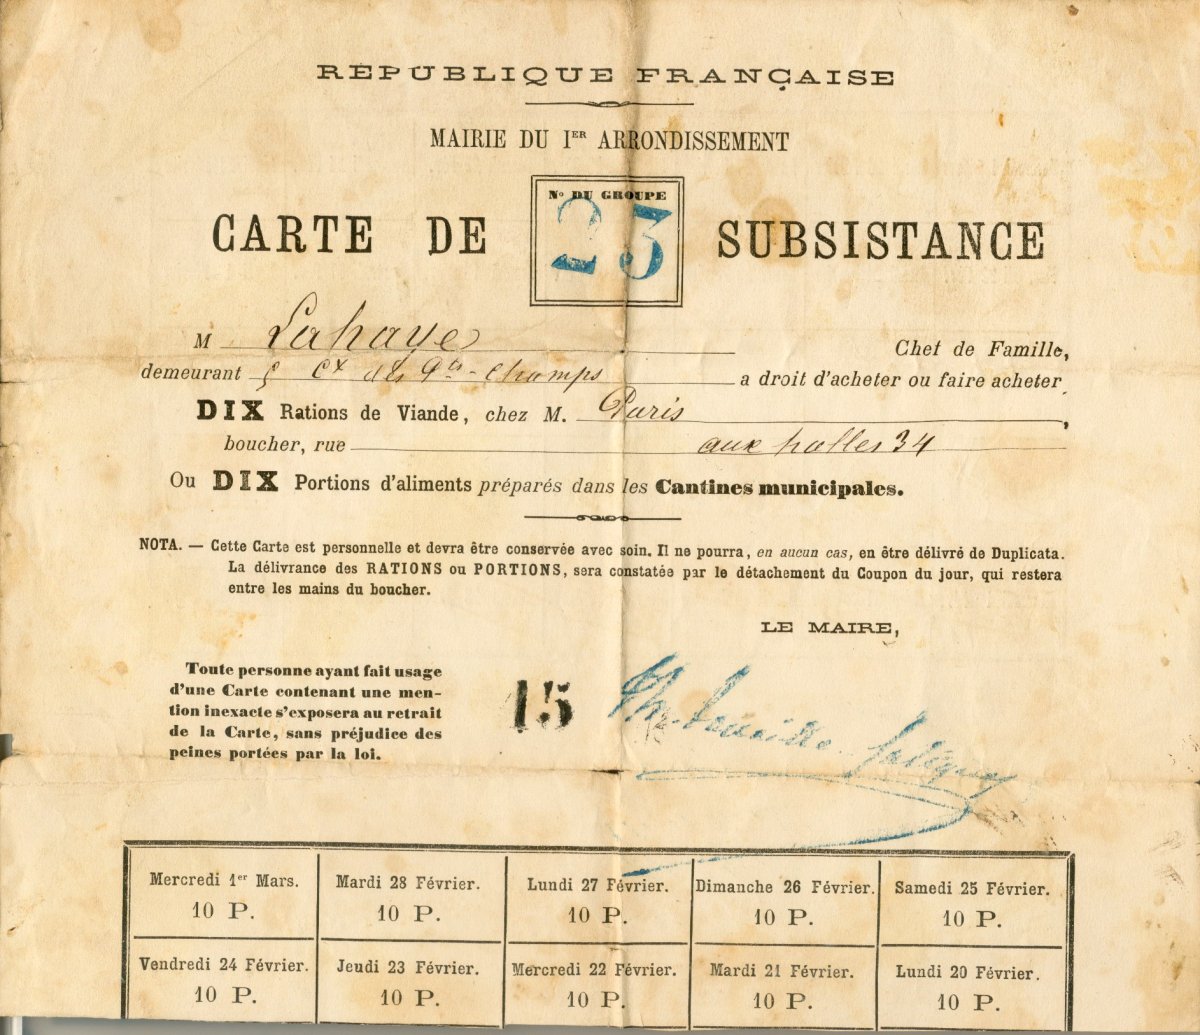 RÉPUBLIQUE FRANÇAISE
MAIRIE DU IER ARRONDISSEMENT
No DU GROUPE
CARTE DE 25 SUBSISTANCE
M Lahaye Chef de Famille,
demeurant 5 Cx des Pts-Champs a droit d'acheter ou faire acheter
DIX Rations de Viande, chez M. Paris,
boucher, rue aux halles 34
Ou DIX Portions d'aliments préparés dans les Cantines municipales.
NOTA. — Cette Carte est personnelle et devra être conservée avec soin. Il ne pourra, en aucun cas, en être délivré de Duplicata.
La délivrance des RATIONS ou PORTIONS, sera constatée par le détachement du Coupon du jour, qui restera
entre les mains du boucher.
LE MAIRE,
Toute personne ayant fait usage
d'une Carte contenant une men-
tion inexacte s'exposera au retrait
de la Carte, sans préjudice des
peines portées par la loi.
15
Mercredi 1er Mars. Mardi 28 Février. Lundi 27 Février. Dimanche 26 Février. Samedi 25 Février.
10 P. 10 P. 10 P. 10 P. 10 P.
Vendredi 24 Février. Jeudi 23 Février. Mercredi 22 Février. Mardi 21 Février. Lundi 20 Février.
10 P. 10 P. 10 P. 10 P. 10 P.